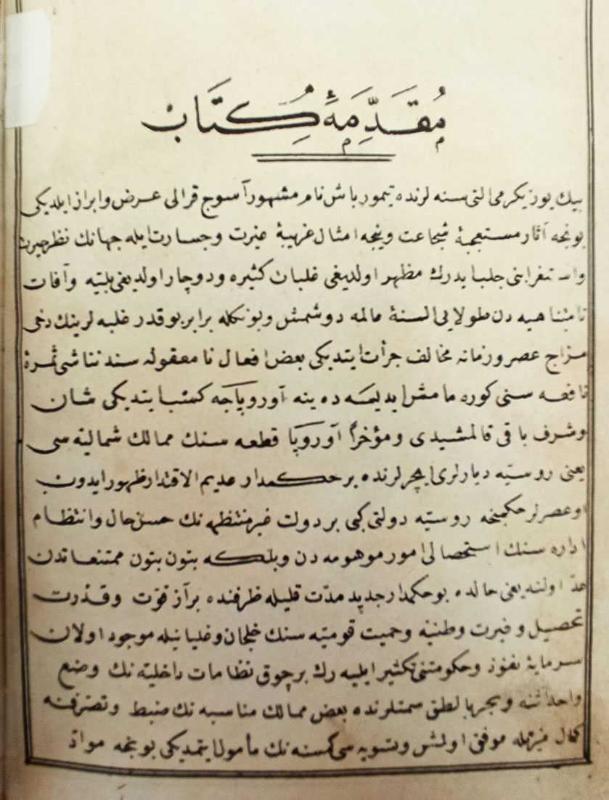 مُقَدِّمَهٔ كِتَاب
بيك يوز يكرمى التى سنه لرنده تيمور باش نام مشهور آسوج قرالى عرض و ابراز ايلديكى
بونجه آثار مستعجبۀ شجاعت ونيجه امثال غريبۀ غيرت و جسارت ايله جهانك نظر حيرت
واستغرابنى جلب ايدرك مظهر اولديغى غلبات كثيره و دوچار اولديغى بليه وآفات
نامتناهيه دن طولايى السنۀ عالمه دوشمش وبونكله برابر بو قدر غلبه لرينك دخى
مزاج عصر و زمانه مخالف جرأت ايتديكى بعض افعال نامعقوله سندن ناشى ثمرۀ
نافعه سنى كوره مامش ايديسه ده ينه آوروپاجه كسب ايتديكى شان
وشرف باقى قالمشيدى ومؤخرًا آوروپا قطعه سنك ممالك شماليه سى
يعنى روسيه ديارلرى ايچرلرنده بر حكمدار عديم الاقتدار ظهور ايدوب
او عصرلر حكمنجه روسيه دولتى كبى بر دولت غير منتظمه نك حسن حال وانتظام
اداره سنك استحصالى امور موهومه دن وبلكه بتون بتون ممتنعاتدن
عد اولنه يعنى حالده بو حكمدار جديد مدت قليله ظرفنده بر آز قوت وقدرت
تحصيل و غيرت وطنيه وحميت قوميه سنك خلجان وغليانيله موجود اولان
سرمايۀ نفوذ وحكومتنى تكثير ايليه رك برچوق نظامات داخليه نك وضع
واحداثنه وبحر بالطق سمتلرنده بعض ممالك مناسبه نك ضبط وتصرفنه
كمال غيرتله موفق اولمش وتسويه سى كسنه نك مأمول ايتمديكى بونجه مواد